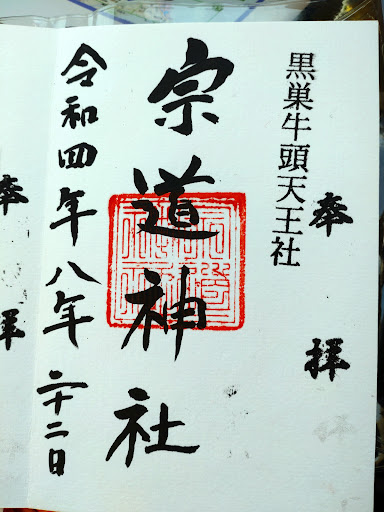 奉拝
黒巣牛頭天王社
宗道神社
令和四年八年二十二日
奉拝